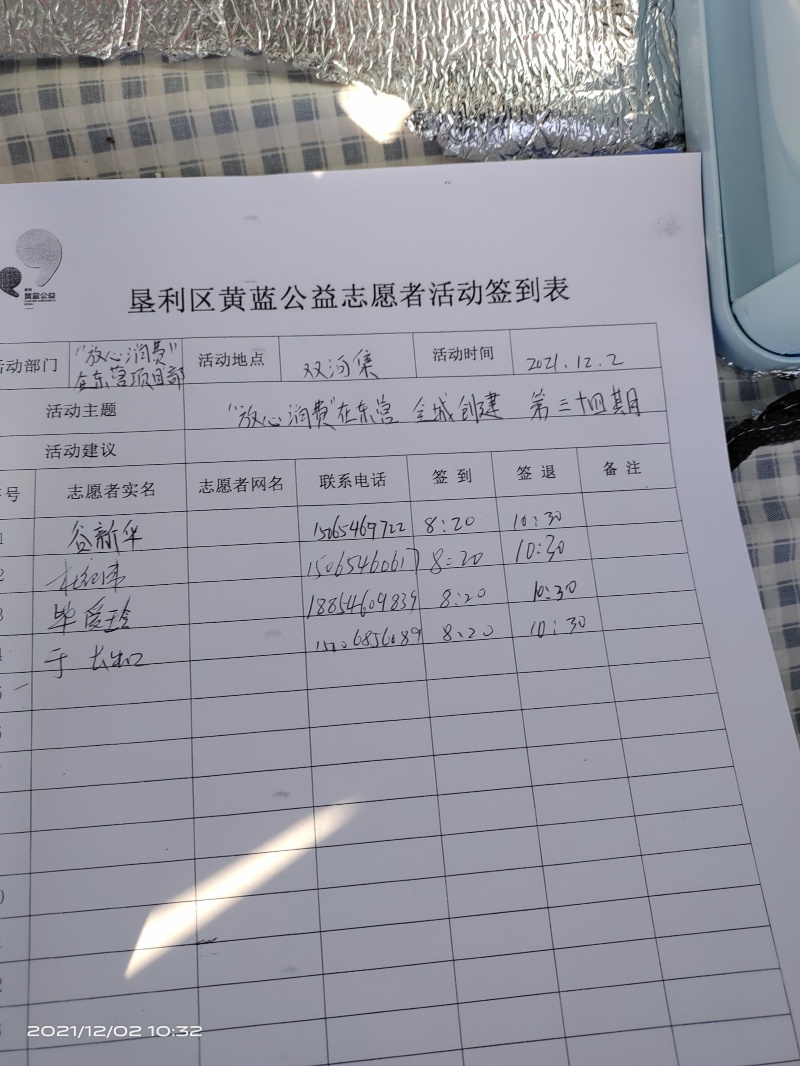 黄蓝公益
垦利区黄蓝公益志愿者活动签到表
活动部门 "放心消费"在东营项目部 活动地点 双河集 活动时间 2021.12.2
活动主题 "放心消费"在东营 全城创建 第三十四期
活动建议
号 志愿者实名 志愿者网名 联系电话 签到 签退 备注
1 谷新华 15065469722 8:20 10:30
2 15065460617 8:20 10:30
3 毕爱玲 18854609839 8:20 10:30
于 8:20 10:30
2021/12/02 10:32